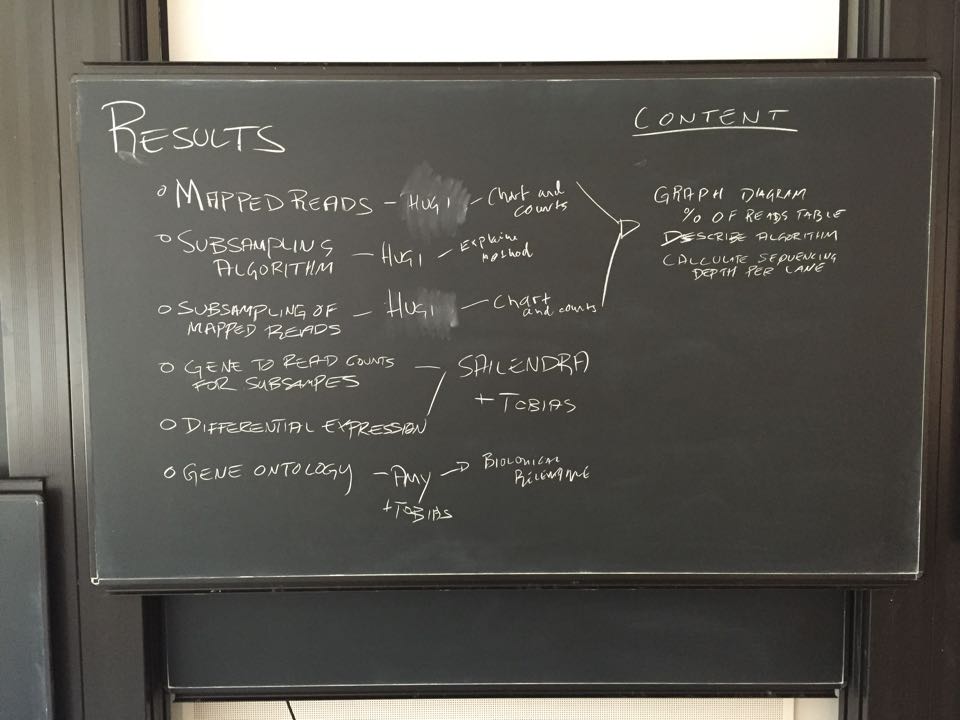 RESULTS
o MAPPED READS - HUGI - Chart and
counts
o SUBSAMPLING
ALGORITHM - HUGI - Explaine
method
o SUBSAMPLING OF
MAPPED READS - HUGI - Chart
and counts
o GENE TO READ COUNTS
FOR SUBSAMPES - SAILENDRA
+ TOBIAS
o DIFFERENTIAL EXPRESSION
o GENE ONTOLOGY - AMY → BIOLOGICAL
+ TOBIAS
CONTENT
GRAPH DIAGRAM
% OF READS TABLE
DESCRIBE ALGORITHM
CALCULATE SEQUENCING
DEPTH PER LANE